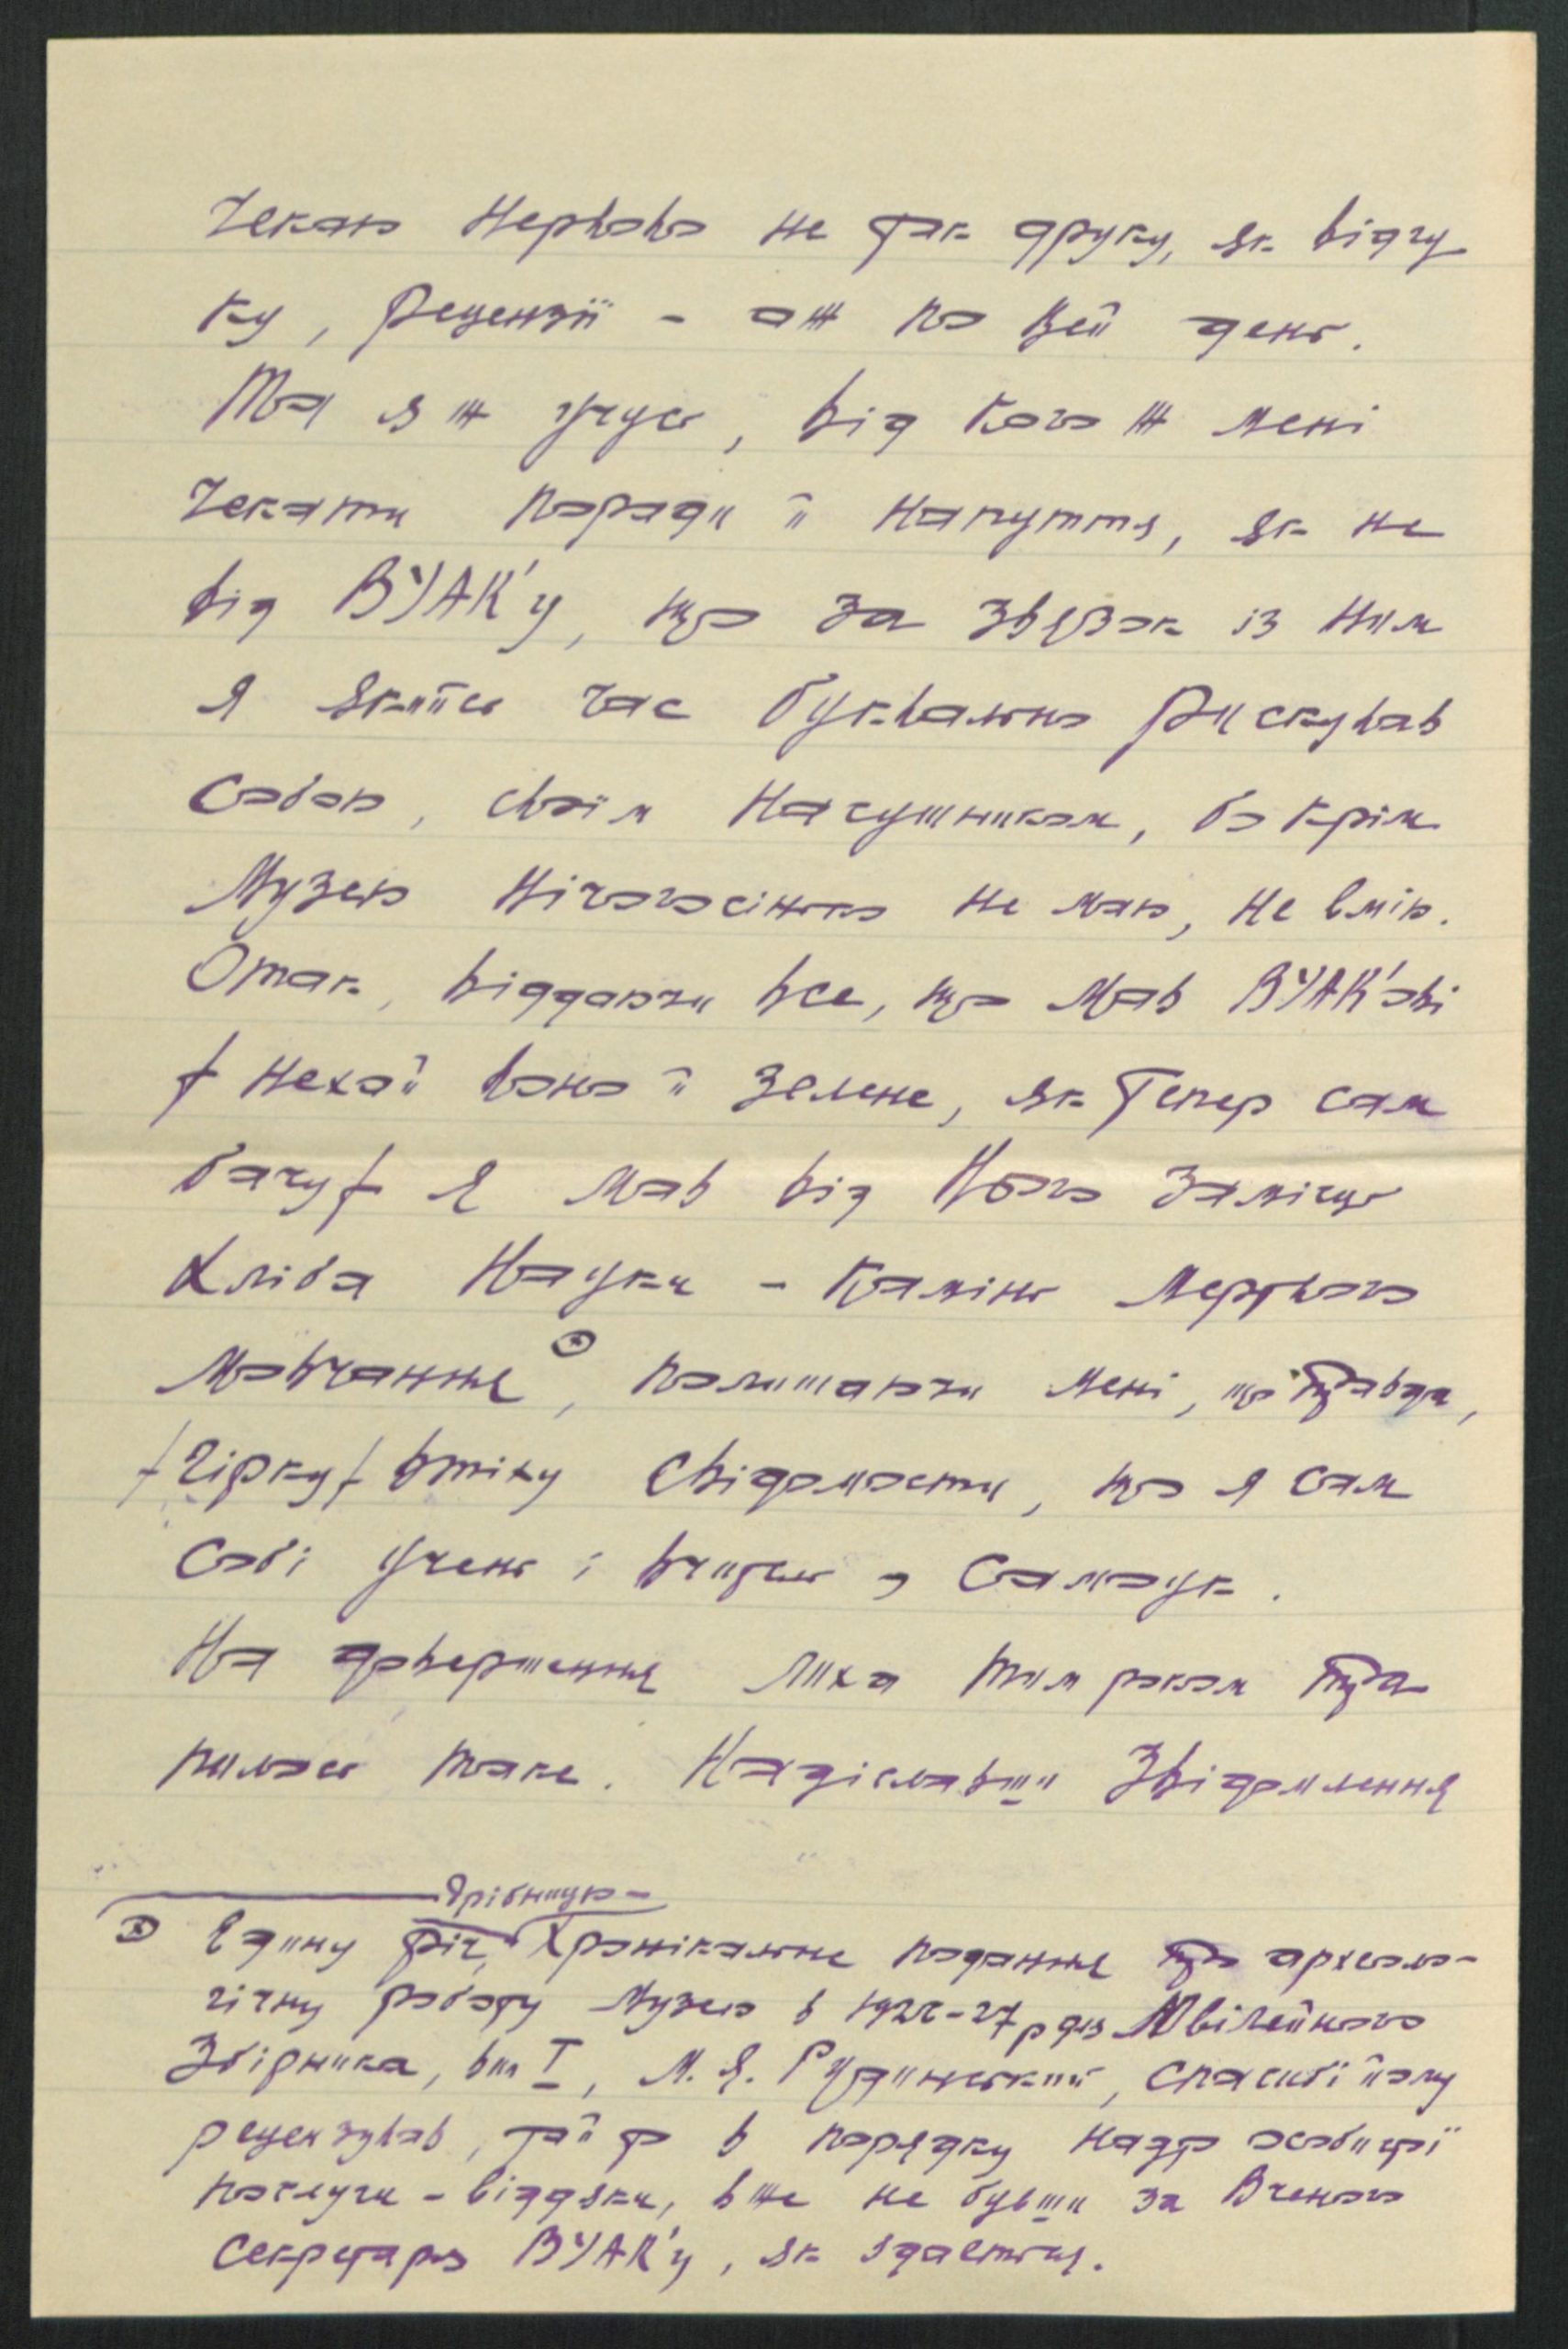 Чекаю нервово не так друку, як відгу
ку, рецензії - аж по цей день.
Та я ж учусь, від кого ж мені
чекати поради й напуття, як не
від ВУАК'у, що за звязок із ним
я якийсь час буквально рискував
собою, своїм насущником, бо крім
Музею нічогосінько не маю, не вмію.
Отак, віддаючи все, що мав ВУАК'ові
/ нехай воно й зелене, як тепер сам
бачу/ я мав від Нього замісць
хліба Науки - камінь мертвого
мовчання ⊗, полишаючи мені, що правда,
/гірку/ втіху свідомости, що я сам
собі учень і вчитель, самоук.
На довершення лиха тим роком тра
пилось таке. Надіславши Звідомлення
дрібницю -
⊗ Єдину річ, хронікальне подання про археоло-
гічну роботу Музею в 1926-27 р для Ювілейного
Збірника, вип I, М. Я. Рудинський, спасибі йому
рецензував, та й то в порядку надто особистої
послуги - віддяки, вже не бувши за Вченого
Секретаря ВУАК'у, як здається.